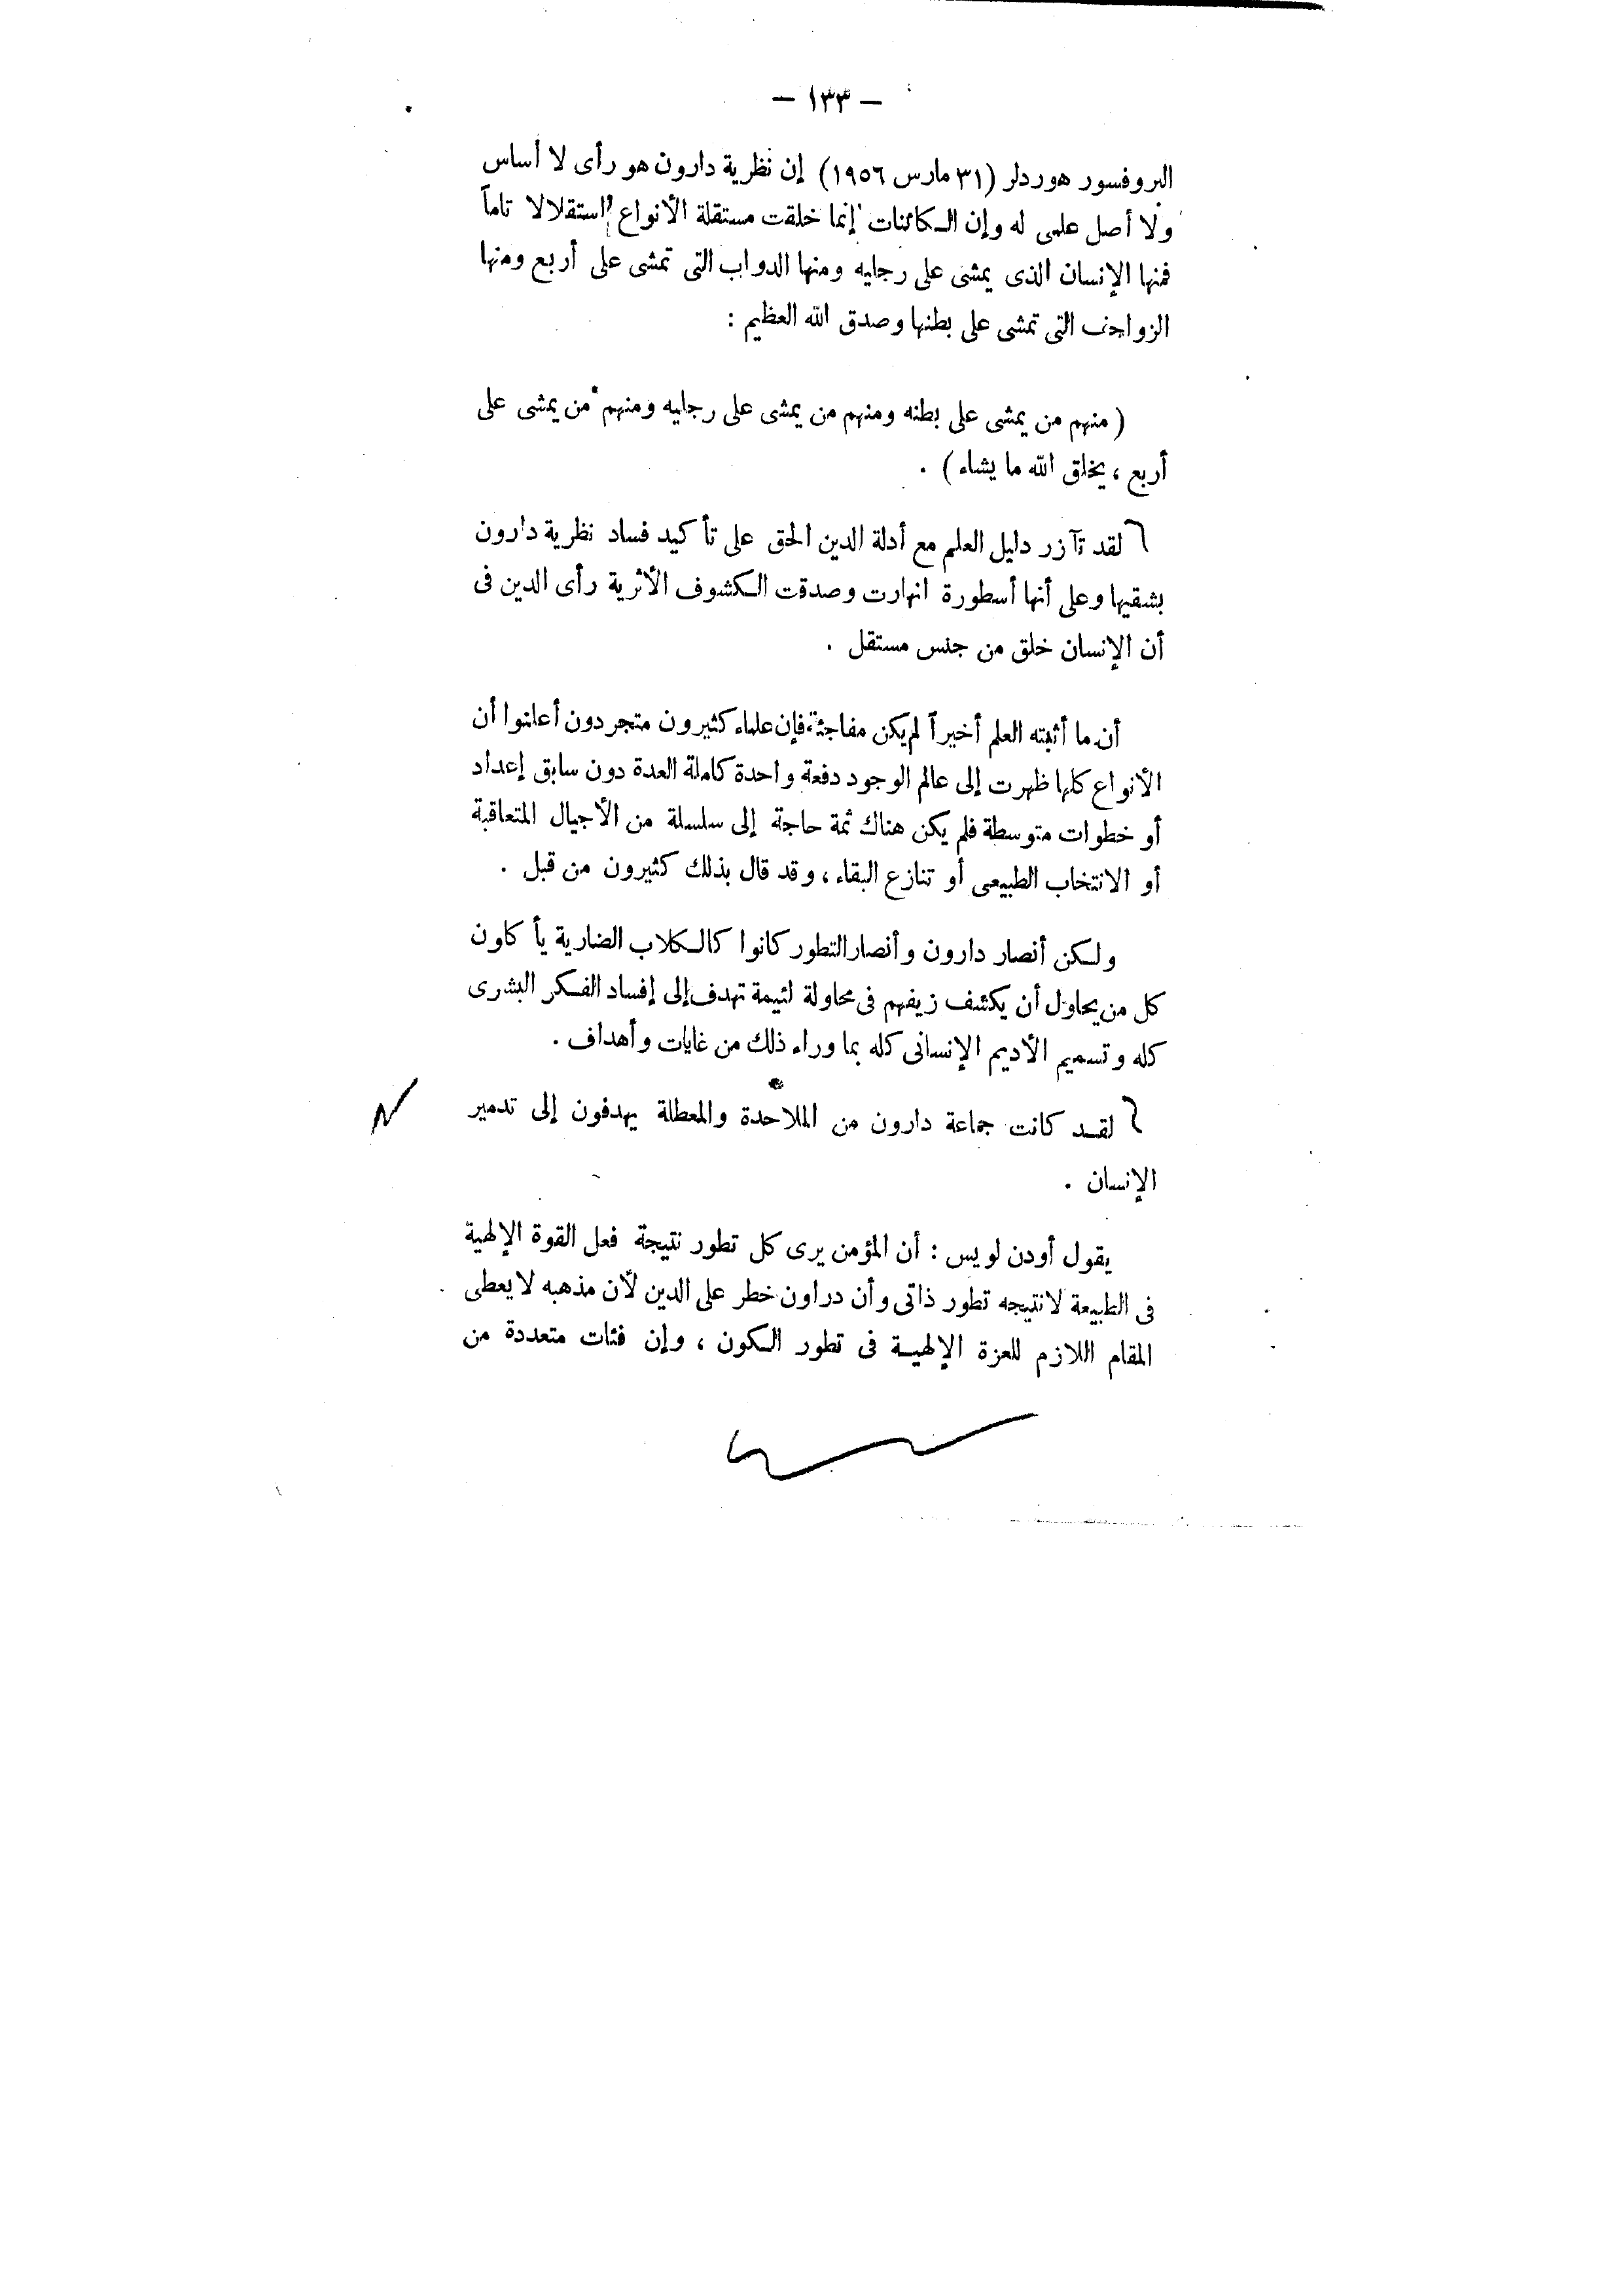 — ١٣٣ —
البروفسور هوردلر (٣١ مارس ١٩٥٦) إن نظرية دارون هو رأى لا أساس
ولا أصل علمى له وإن الكائنات إنما خلقت مستقلة الأنواع استقلالا تاماً
فمنها الإنسان الذى يمشى على رجليه ومنها الدواب التى تمشى على أربع ومنها
الزواحف التى تمشى على بطنها وصدق الله العظيم :
( منهم من يمشى على بطنه ومنهم من يمشى على رجليه ومنهم من يمشى على
أربع ، يخلق الله ما يشاء ) .
لقد تآزر دليل العلم مع أدلة الدين الحق على تأكيد فساد نظرية دارون
بشقيها وعلى أنها أسطورة انهارت وصدقت الكشوف الأثرية رأى الدين فى
أن الإنسان خلق من جنس مستقل .
أن ما أثبته العلم أخيراً لم يكن مفاجئة فإن علماء كثيرون متجردون أعلنوا أن
الأنواع كلها ظهرت إلى عالم الوجود دفعة واحدة كاملة العدة دون سابق إعداد
أو خطوات متوسطة فلم يكن هناك ثمة حاجة إلى سلسلة من الأجيال المتعاقبة
أو الانتخاب الطبيعى أو تنازع البقاء ، وقد قال بذلك كثيرون من قبل .
ولكن أنصار دارون وأنصار التطور كانوا كالكلاب الضارية يأكلون
كل من يحاول أن يكشف زيفهم فى محاولة لئيمة تهدف إلى إفساد الفكر البشرى
كله وتسميم الأديم الإنسانى كله بما وراء ذلك من غايات وأهداف .
لقد كانت جماعة دارون من الملاحدة والمعطلة يهدفون إلى تدمير
الإنسان .
يقول أودن لويس : أن المؤمن يرى كل تطور نتيجة فعل القوة الإلهية
فى الطبيعة لا نتيجه تطور ذاتى وأن دراون خطر على الدين لأن مذهبه لا يعطى
المقام اللازم للعزة الإلهية فى تطور الكون ، وإن فئات متعددة من